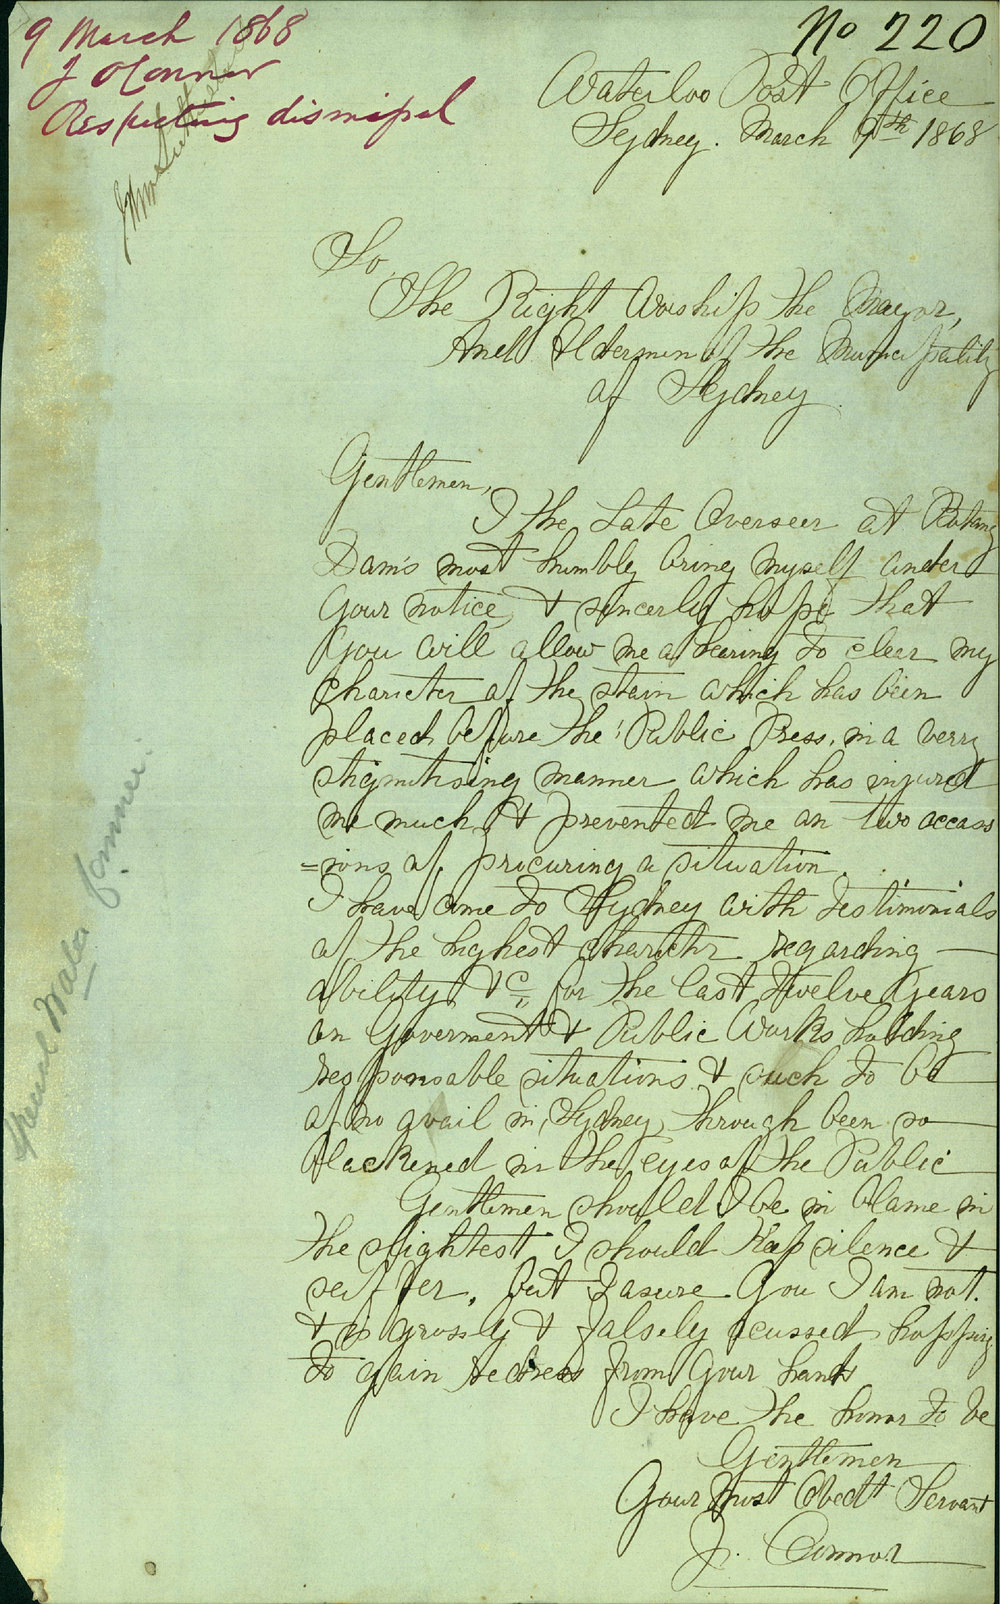 9 March 1868
J OConnor
Respecting dismissal
No 220
Waterloo Post Office
Sydney. March 9th 1868
To,
The Right Worship the Mayor,
And Aldermen of the Municipality
of Sydney
Gentlemen,
I the Late Overseer at Botany
Dam's most humbly bring myself under
Your notice, & sincerly hope that
You will allow me a hearing to clear my
charicter of the stain which has been
placed before the Public Press, in a verry
stigmitising manner which has injured
me much, & prevented me on two occass
=ions of procuring a situation.
I have come to Sydney with testimonials
of the highest charicter regarding
ability &c for the last twelve years
on Goverment & Public Works holding
responsable situations & such to be
of no avail in Sydney through been so
blackened in the eyes of the Public
Gentlemen should I be in blame in
the slightest I should keep silence &
suffer, but I asure You I am not.
& is grossly & falsely acussed hopping
to gain redress from Your hands
I have the honor to be
Gentlemen
Your Most Obedt Servant
J. Connor
Water